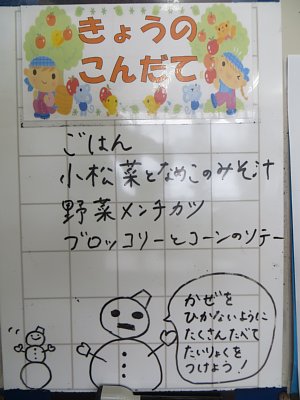 きょうの
こんだて
ごはん
小松菜となめこのみそ汁
野菜メンチカツ
ブロッコリーとコーンのソテー
かぜを
ひかないように
たくさんたべて
たいりょくを
つけよう!